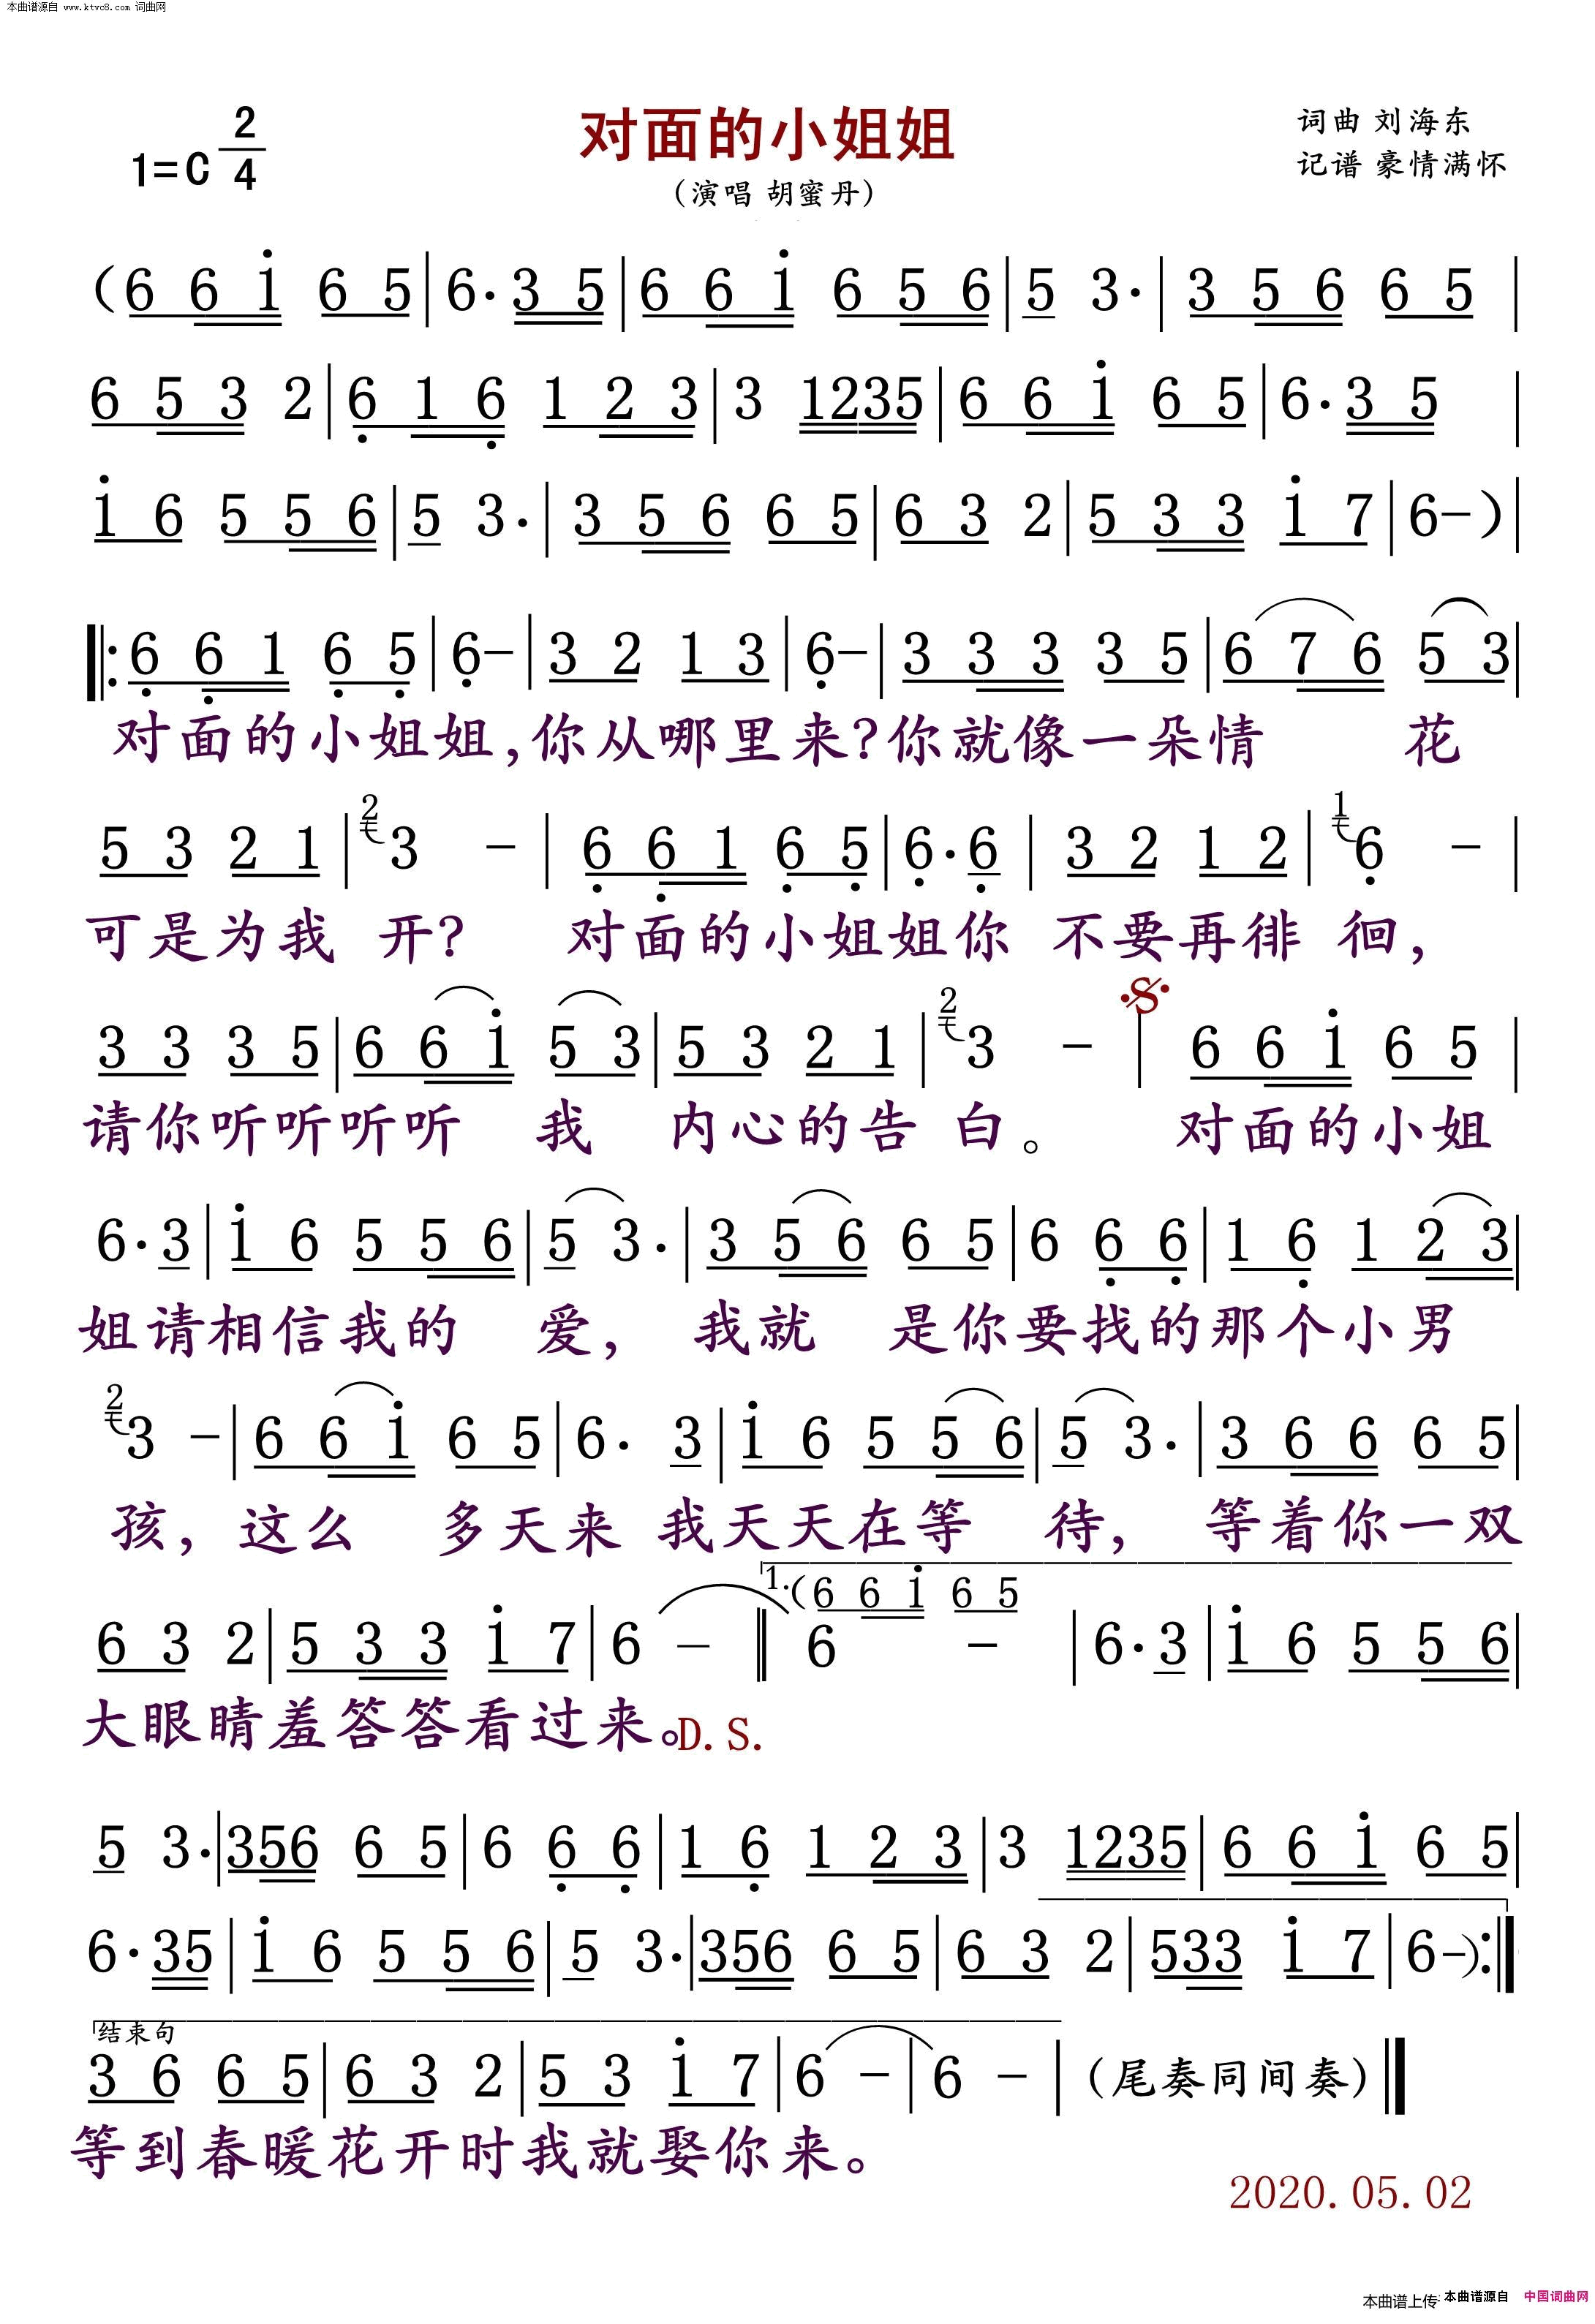 本曲谱源自 www.ktvc8.com 词曲网
对面的小姐姐
1=C 2/4
（演唱 胡蜜丹）
词曲 刘海东
记谱 豪情满怀
（6 6 i 6 5 | 6· 3 5 | 6 6 i 6 5 6 | 5 3· | 3 5 6 6 5 |
6 5 3 2 | 6 1 6 1 2 3 | 3 1235 | 6 6 i 6 5 | 6· 3 5 |
i 6 5 5 6 | 5 3· | 3 5 6 6 5 | 6 3 2 | 5 3 3 i 7 | 6 - ） |
‖: 6 6 1 6 5 | 6 - | 3 2 1 3 | 6 - | 3 3 3 3 5 | 6 7 6 5 3 |
对面的小姐姐,你从哪里来?你就像一朵情 花
5 3 2 1 | 2 3 - | 6 6 1 6 5 | 6· 6 | 3 2 1 2 | 1 6 - |
可是为我 开? 对面的小姐姐你 不要再徘 徊,
3 3 3 5 | 6 6 i 5 3 | 5 3 2 1 | 2 3 - | 𝄋 6 6 i 6 5 |
请你听听听听 我 内心的告 白。 对面的小姐
6· 3 | i 6 5 5 6 | 5 3· | 3 5 6 6 5 | 6 6 6 | 1 6 1 2 3 |
姐请相信我的 爱, 我就 是你要找的那个小男
2 3 - | 6 6 i 6 5 | 6· 3 | i 6 5 5 6 | 5 3· | 3 6 6 6 5 |
孩, 这么 多天来 我天天在等 待, 等着你一双
1. （6 6 i 6 5
6 3 2 | 5 3 3 i 7 | 6 - ‖ 6 - | 6· 3 | i 6 5 5 6 |
大眼睛羞答答看过来。D.S.
5 3· | 356 6 5 | 6 6 6 | 1 6 1 2 3 | 3 1235 | 6 6 i 6 5 |
6· 35 | i 6 5 5 6 | 5 3· | 356 6 5 | 6 3 2 | 533 i 7 | 6 - ） :‖
结束句
3 6 6 5 | 6 3 2 | 5 3 i 7 | 6 - | 6 - | （尾奏同间奏） ‖
等到春暖花开时我就娶你来。
2020.05.02
本曲谱上传: 本曲谱源自 中国词曲网